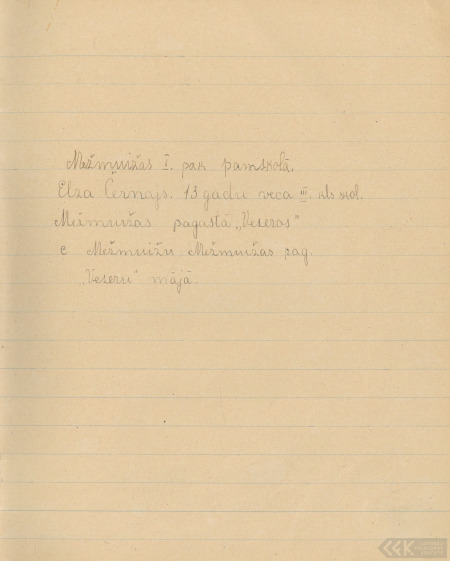 Mežmuižas I. pak pamskolā.
Elza Černajs. 13 gadu veca III. kls skol.
Mežmuižas pagastā „Veseros"
c Mežmuižu Mežmuižas pag.
„Veseru" mājā.